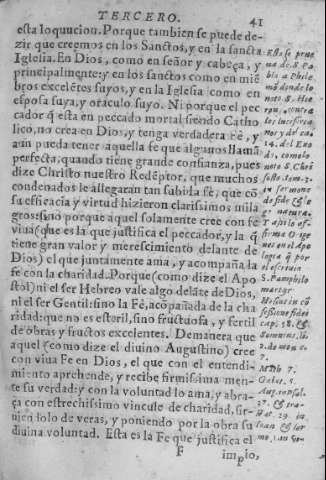 TERCERO.
41
esta loquucion. Porque tambien se puede de-
zir que creemos en los Sanctos, y en la sancta
Iglesia. En Dios, como en señor y cabeça, y
principalmente: y en los sanctos como en miē
bros excelẽtes suyos, y en la Iglesia como en
esposa suya, y oraculo suyo. Ni porque el pec
cador q̃ esta en peccado mortal siendo Catho
lico, no crea en Dios, y tenga verdadera fè, y
aun pueda tener aquella fe que algunos llamã
perfecta, quando tiene grande confiança, pues
dize Christo nuestro Redẽptor, que muchos
condenados le allegaran tan subida fè, que cõ
su efficacia y virtud hizieron clarissimos mila
gros: sino porque aquel solamente cree con fe
viua (que es la que justifica el peccador, y la q̃
tiene gran valor y merescimiento delante de
Dios) el que juntamente ama, y acompaña la
fe con la charidad. Porque (como dize el Apo
stol) ni el ser Hebreo vale algo delãte de Dios,
ni el ser Gentil: sino la Fè, acõpañada de la cha
ridad: que no es esteril, sino fructuosa, y fertil
de obras y fructos excelentes. De manera que
aquel (como dize el diuino Augustino) cree
con viua Fe en Dios, el que con el entendi-
miento aprehende, y recibe firmissima men-
te su verdad: y con la voluntad lo ama, y abra-
ça con estrechissimo vinculo de charidad, sir-
uien lolo de veras, y poniendo por la obra su
diuina voluntad. Esta es la Fe que justifica el
F
impio,
Esta se prue
ua de S. Pa
blo a Phile
mõ donde lo
noto S. Hie
ron. contra
14. del Eno
S. Pamphilo
martyr
cap. 58. &
2. de mon. c.
7.
Mth 7.
Galat. 5.
27. & tra-